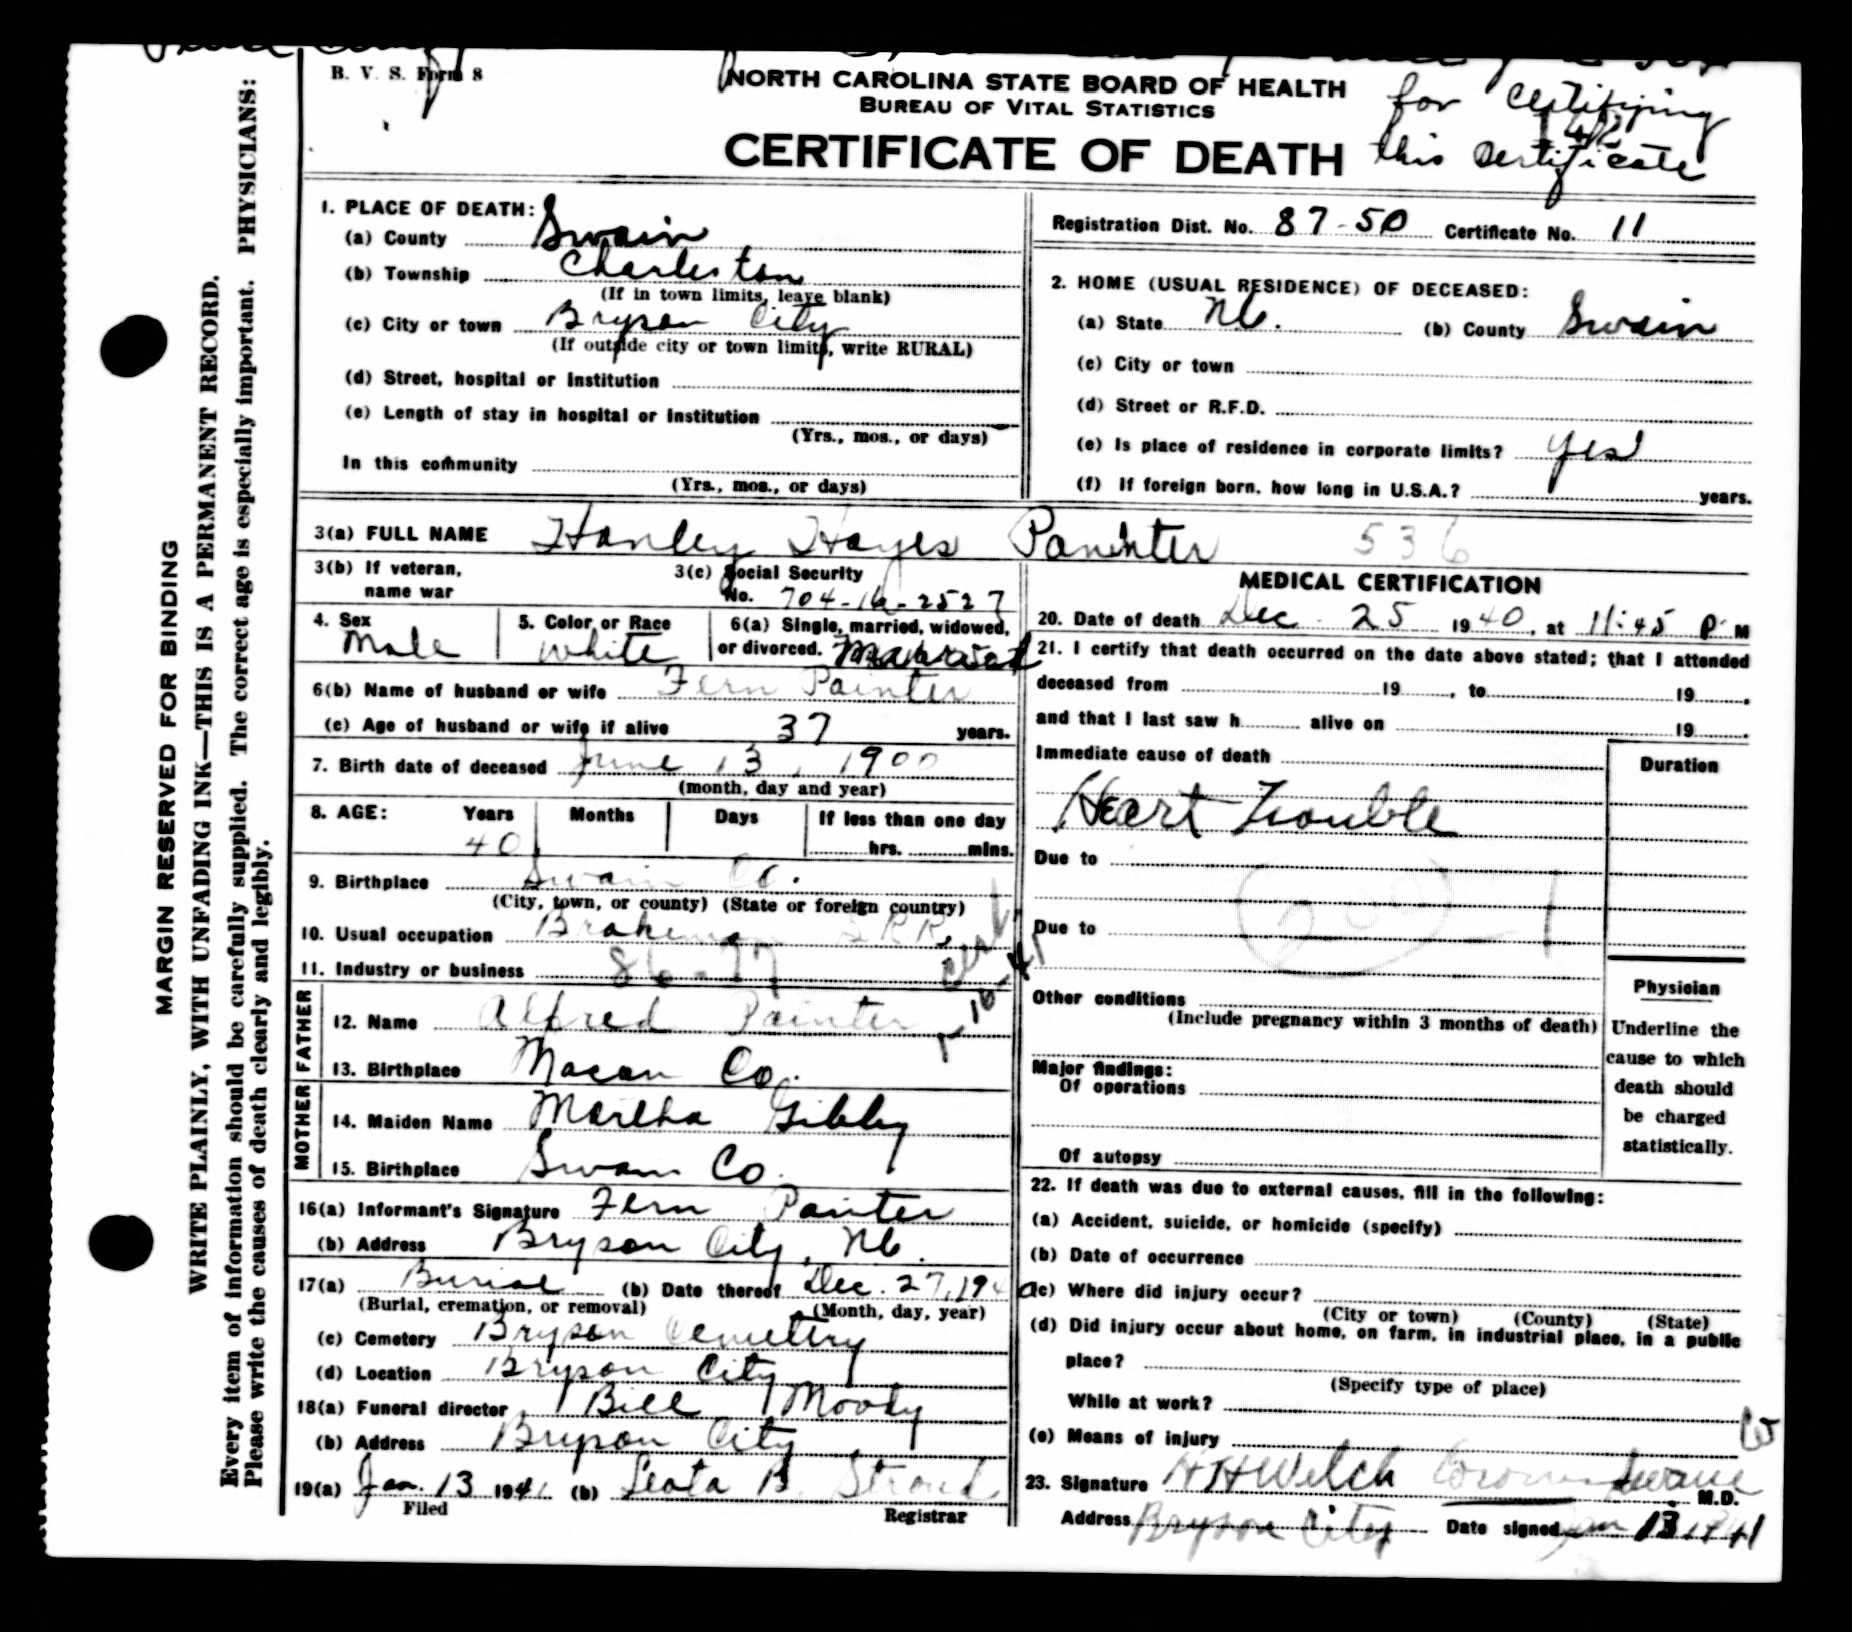 B. V. S. Form 8
NORTH CAROLINA STATE BOARD OF HEALTH
BUREAU OF VITAL STATISTICS
CERTIFICATE OF DEATH
for certifying
this certificate
MARGIN RESERVED FOR BINDING
WRITE PLAINLY, WITH UNFADING INK—THIS IS A PERMANENT RECORD.
Every item of information should be carefully supplied. The correct age is especially important. PHYSICIANS:
Please write the causes of death clearly and legibly.
1. PLACE OF DEATH:
(a) County Swain
(b) Township Charleston
(If in town limits, leave blank)
(c) City or town Bryson City
(If outside city or town limits, write RURAL)
(d) Street, hospital or institution
(e) Length of stay in hospital or institution
(Yrs., mos., or days)
In this community
(Yrs., mos., or days)
Registration Dist. No. 87-50 Certificate No. 11
2. HOME (USUAL RESIDENCE) OF DECEASED:
(a) State NC. (b) County Swain
(c) City or town
(d) Street or R.F.D.
(e) Is place of residence in corporate limits? Yes
(f) If foreign born, how long in U.S.A.? years.
3(a) FULL NAME Hanley Hayes Painter 536
3(b) If veteran, name war
3(c) Social Security No. 704-16-2527
4. Sex Male
5. Color or Race White
6(a) Single, married, widowed, or divorced. Married
6(b) Name of husband or wife Fern Painter
(c) Age of husband or wife if alive 37 years.
7. Birth date of deceased June 13, 1900
(month, day and year)
8. AGE: Years Months Days If less than one day
40 hrs. mins.
9. Birthplace Swain Co.
(City, town, or county) (State or foreign country)
10. Usual occupation Brakeman S.R.R.
11. Industry or business 86-77
FATHER
12. Name Alfred Painter
13. Birthplace Macon Co.
MOTHER
14. Maiden Name Martha Gibby
15. Birthplace Swain Co.
16(a) Informant's Signature Fern Painter
(b) Address Bryson City, NC.
17(a) Burial (b) Date thereof Dec. 27, 1940
(Burial, cremation, or removal) (Month, day, year)
(c) Cemetery Bryson Cemetery
(d) Location Bryson City
18(a) Funeral director Bill Moody
(b) Address Bryson City
19(a) Jan. 13 1941 (b) Leota B. Stroud
Filed Registrar
MEDICAL CERTIFICATION
20. Date of death Dec. 25 1940, at 11:45 P M
21. I certify that death occurred on the date above stated; that I attended
deceased from 19 , to 19 .
and that I last saw h alive on 19 .
Immediate cause of death
Duration
Heart Trouble
Due to
Due to
Other conditions
(Include pregnancy within 3 months of death)
Major findings:
Of operations
Of autopsy
Physician
Underline the
cause to which
death should
be charged
statistically.
22. If death was due to external causes, fill in the following:
(a) Accident, suicide, or homicide (specify)
(b) Date of occurrence
(c) Where did injury occur?
(City or town) (County) (State)
(d) Did injury occur about home, on farm, in industrial place, in a public
place?
(Specify type of place)
While at work?
(e) Means of injury
23. Signature H H Welch M.D.
Address Bryson City Date signed Jan 13 1941